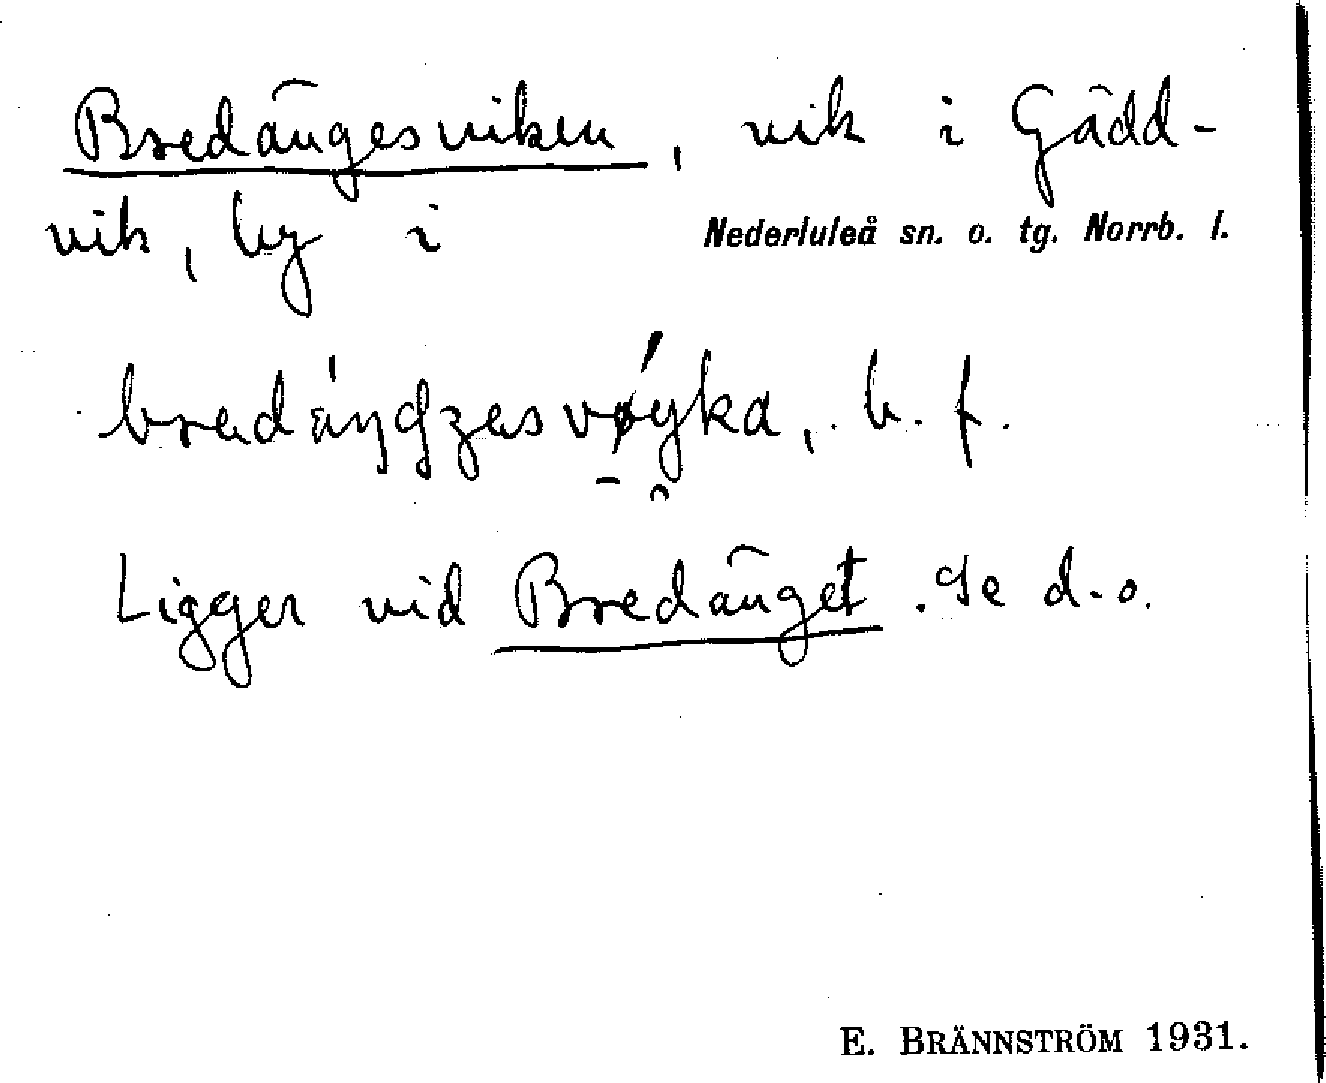 Bredängesviken, vik i Gädd-
vik, by i Nederluleå sn. o. tg. Norrb. l.
b. f.
Ligger vid Bredänget. Se d.o.
E. BRÄNNSTRÖM 1931.